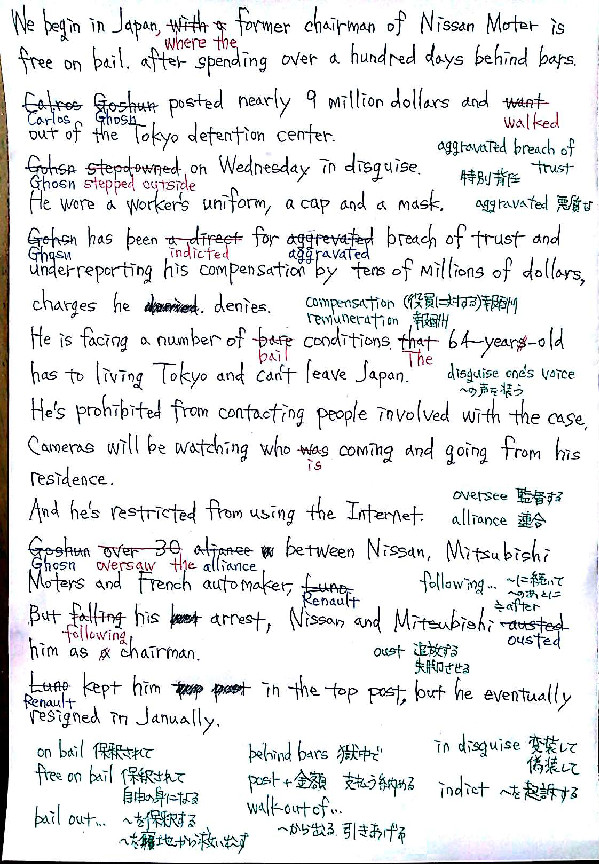 We begin in Japan, with a former chairman of Nissan Moter is
where the
free on bail. after spending over a hundred days behind bars.
Calros Goshun posted nearly 9 million dollars and want
Carlos Ghosn walked
out of the Tokyo detention center.
aggravated breach of trust
特別背任
Gohsn stepdowned on Wednesday in disguise.
Ghosn stepped outside
He wore a worker's uniform, a cap and a mask.
aggravated 悪質な
Gohsn has been a direct for aggrevated breach of trust and
Ghosn indicted aggravated
underreporting his compensation by tens of millions of dollars,
charges he denies.
compensation (役員に対する)報酬
remuneration 報酬
He is facing a number of bare conditions that 64-years-old
bail The
has to living Tokyo and can't leave Japan.
disguise one's voice
〜の声を装う
He's prohibited from contacting people involved with the case,
Cameras will be watching who was coming and going from his
is
residence.
oversee 監督する
And he's restricted from using the Internet.
alliance 連合
Goshun over 30 aljance between Nissan, Mitsubishi
Ghosn oversaw the alliance
Moters and French automaker, Luno
Renault
following... 〜に続いて
〜のあとに
≒after
But falling his arrest, Nissan and Mitsubishi austed
following ousted
him as a chairman.
oust 追放する
失脚させる
Luno kept him in the top post, but he eventually
Renault
resigned in Janually.
on bail 保釈されて
free on bail 保釈されて
自由の身になる
bail out... 〜を保釈する
〜を窮地から救い出す
behind bars 獄中で
post+金額 支払う 納める
walk out of...
〜から出る 引きあげる
in disguise 変装して
偽装して
indict 〜を起訴する